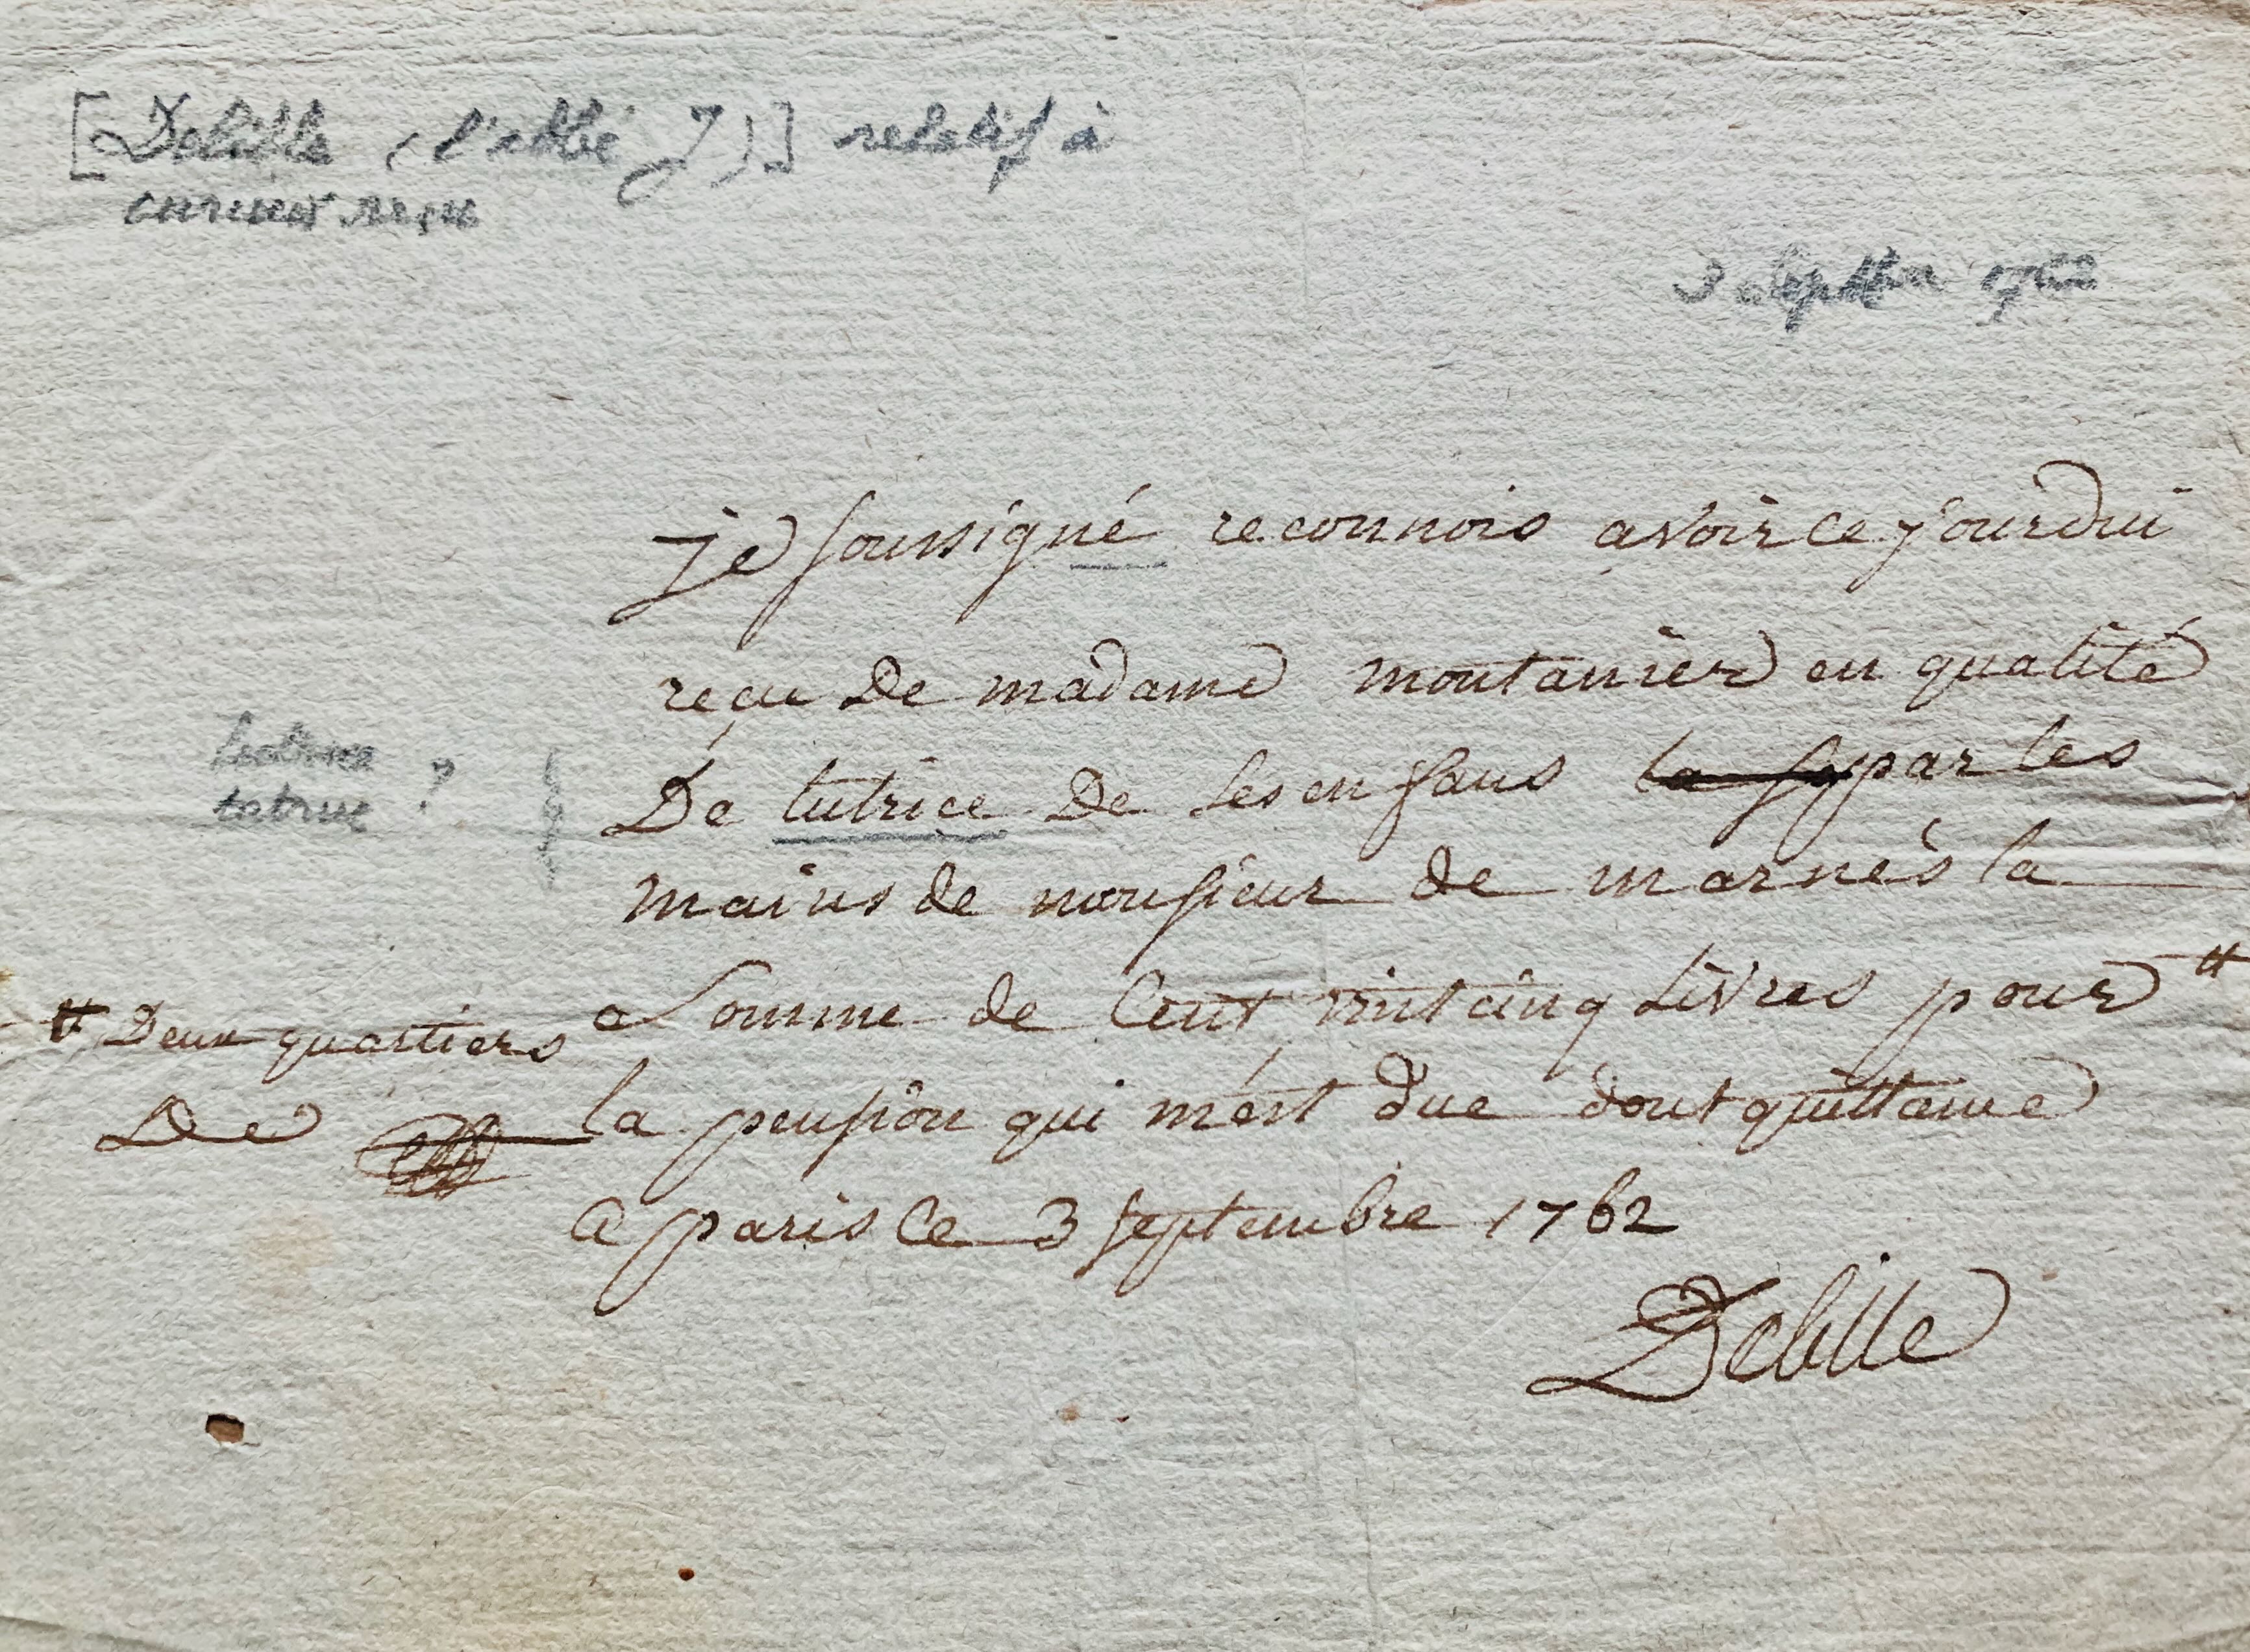 [Delille (l'abbé J)] relatif à
curieux reçu
3 septembre 1762
je soussigné reconnois avoir ce jourdui
reçu De madame montanier en qualité
De tutrice De ses enfans la so par les
mains de monsieur de marnés la
somme de Cent vint cinq Livres pour #
la pension qui m'est due dont quittance
a paris ce 3 septembre 1762
Delille
lectrice
tutrice ?
# Deux quartiers
De